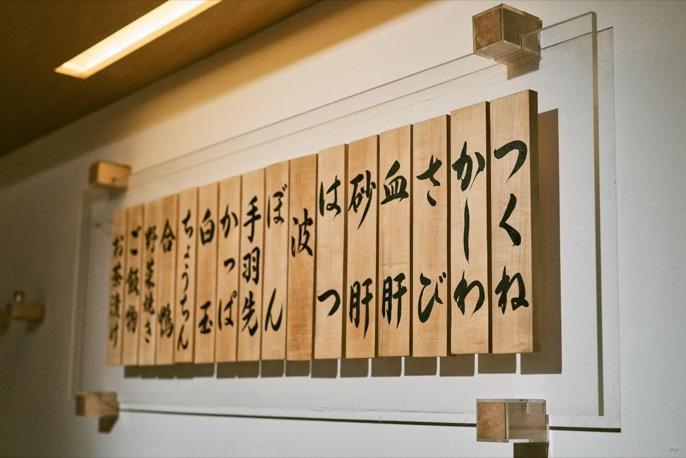 つくね
かしわ
さび
血肝
砂肝
はつ
波
ぼん
手羽先
かっぱ
白玉
ちょうちん
合鴨
野菜焼き
ご飯物
お茶漬け